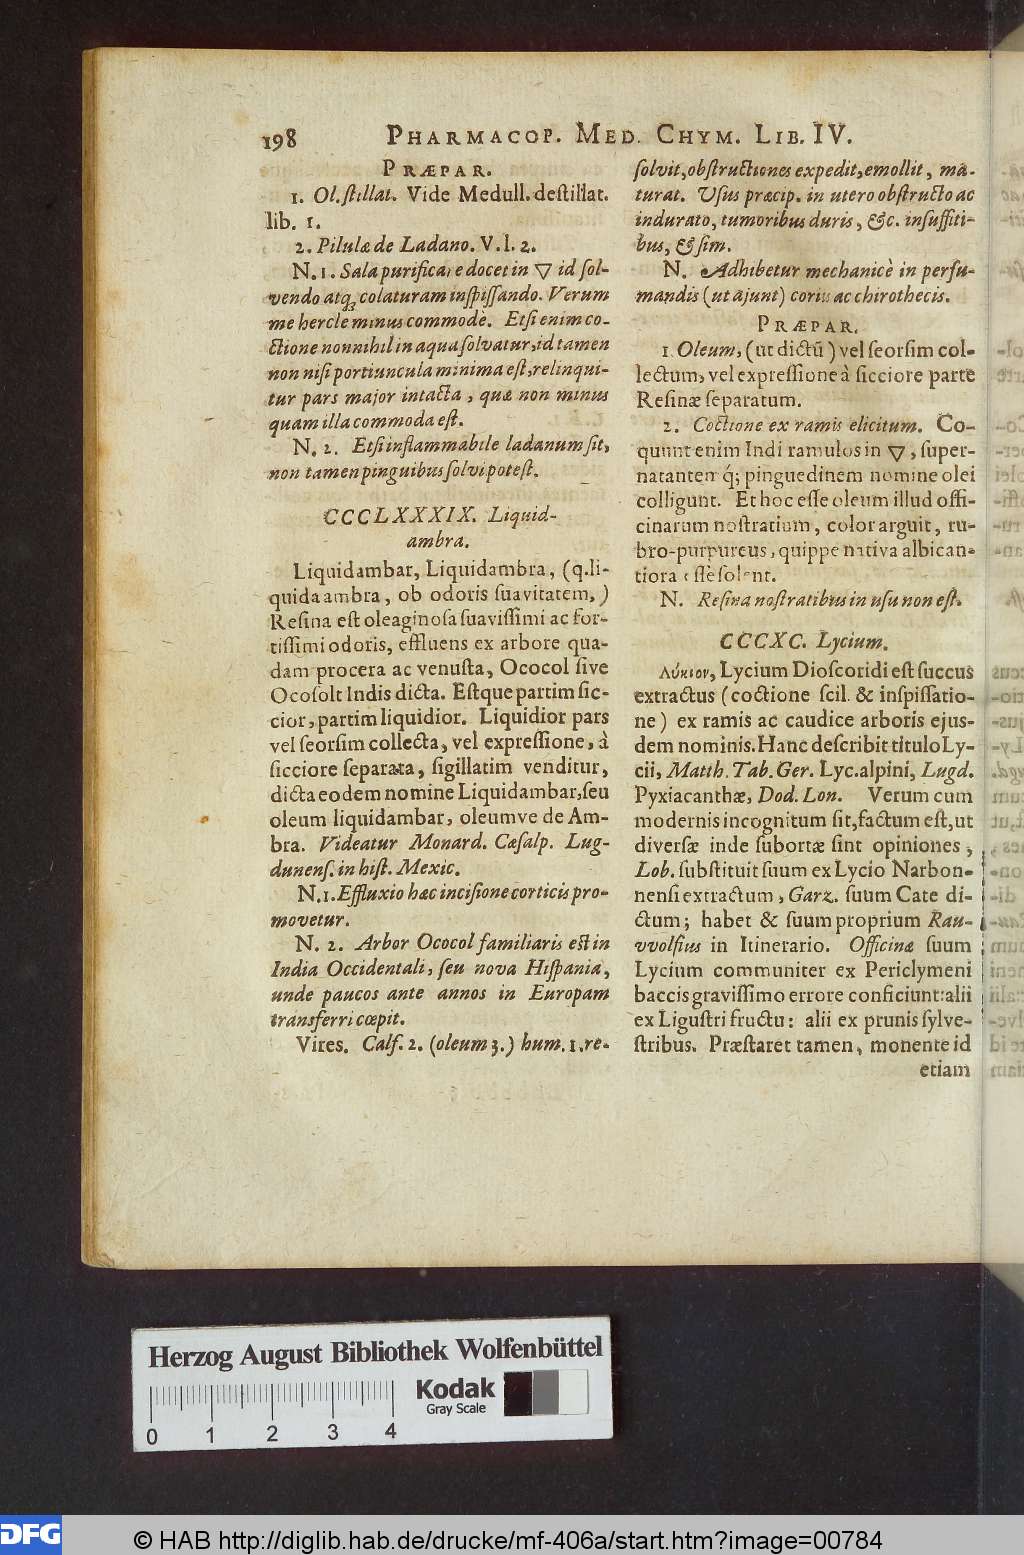 198 PHARMACOP. MED. CHYM. LIB. IV.
PRÆPAR.
1. Ol. ſtillat. Vide Medull. deſtillat.
lib. 1.
2. Pilulæ de Ladano. V. l. 2.
N. 1. Sala purificare docet in 🜄 id ſol-
vendo atq; colaturam inſpiſſando. Verum
me hercle minus commodè. Etſi enim co-
ctione nonnihil in aqua ſolvatur, id tamen
non niſi portiuncula minima eſt, relinqui-
tur pars major intacta, quæ non minus
quam illa commoda eſt.
N. 2. Etſi inflammabile ladanum ſit,
non tamen pinguibus ſolvi poteſt.
CCCLXXXIX. Liquid-
ambra.
Liquidambar, Liquidambra, (q. li-
quida ambra, ob odoris ſuavitatem,)
Reſina eſt oleaginoſa ſuaviſſimi ac for-
tiſſimi odoris, effluens ex arbore qua-
dam procera ac venuſta, Ococol ſive
Ocoſolt Indis dicta. Eſtque partim ſic-
cior, partim liquidior. Liquidior pars
vel ſeorſim collecta, vel expreſſione, à
ſicciore ſeparata, ſigillatim venditur,
dicta eodem nomine Liquidambar, ſeu
oleum liquidambar, oleumve de Am-
bra. Videatur Monard. Cæſalp. Lug-
dunenſ. in hiſt. Mexic.
N. 1. Effluxio hæc inciſione corticis pro-
movetur.
N. 2. Arbor Ococol familiaris eſt in
India Occidentali, ſeu nova Hiſpania,
unde paucos ante annos in Europam
transferri cœpit.
Vires. Calf. 2. (oleum 3.) hum. 1. re-
ſolvit, obſtructiones expedit, emollit, ma-
turat. Vſus præcip. in utero obſtructo ac
indurato, tumoribus duris, &c. inſuffiti-
bus, & ſim.
N. Adhibetur mechanicè in perfu-
mandis (ut ajunt) coriis ac chirothecis.
PRÆPAR.
1. Oleum, (ut dictũ) vel ſeorſim col-
lectum, vel expreſſione à ſicciore parte
Reſinæ ſeparatum.
2. Coctione ex ramis elicitum. Co-
quunt enim Indi ramulos in 🜄, ſuper-
natantem q́; pinguedinem nomine olei
colligunt. Et hoc eſſe oleum illud offi-
cinarum noſtratium, color arguit, ru-
bro-purpureus, quippe nativa albican-
tiora eſſe ſolent.
N. Reſina noſtratibus in uſu non eſt.
CCCXC. Lycium.
Λύκιον, Lycium Dioſcoridi eſt ſuccus
extractus (coctione ſcil. & inſpiſſatio-
ne) ex ramis ac caudice arboris ejus-
dem nominis. Hanc deſcribit titulo Ly-
cii, Matth. Tab. Ger. Lyc. alpini, Lugd.
Pyxiacanthæ, Dod. Lon. Verum cum
modernis incognitum ſit, factum eſt, ut
diverſæ inde ſubortæ ſint opiniones,
Lob. ſubſtituit ſuum ex Lycio Narbon-
nenſi extractum, Garz. ſuum Cate di-
ctum; habet & ſuum proprium Rau-
vvolfius in Itinerario. Officinæ ſuum
Lycium communiter ex Periclymeni
baccis graviſſimo errore conficiunt: alii
ex Liguſtri fructu: alii ex prunis ſylve-
ſtribus. Præſtaret tamen, monente id
etiam
Herzog August Bibliothek Wolfenbüttel
Kodak
Gray Scale
0 1 2 3 4
DFG
© HAB http://diglib.hab.de/drucke/mf-406a/start.htm?image=00784